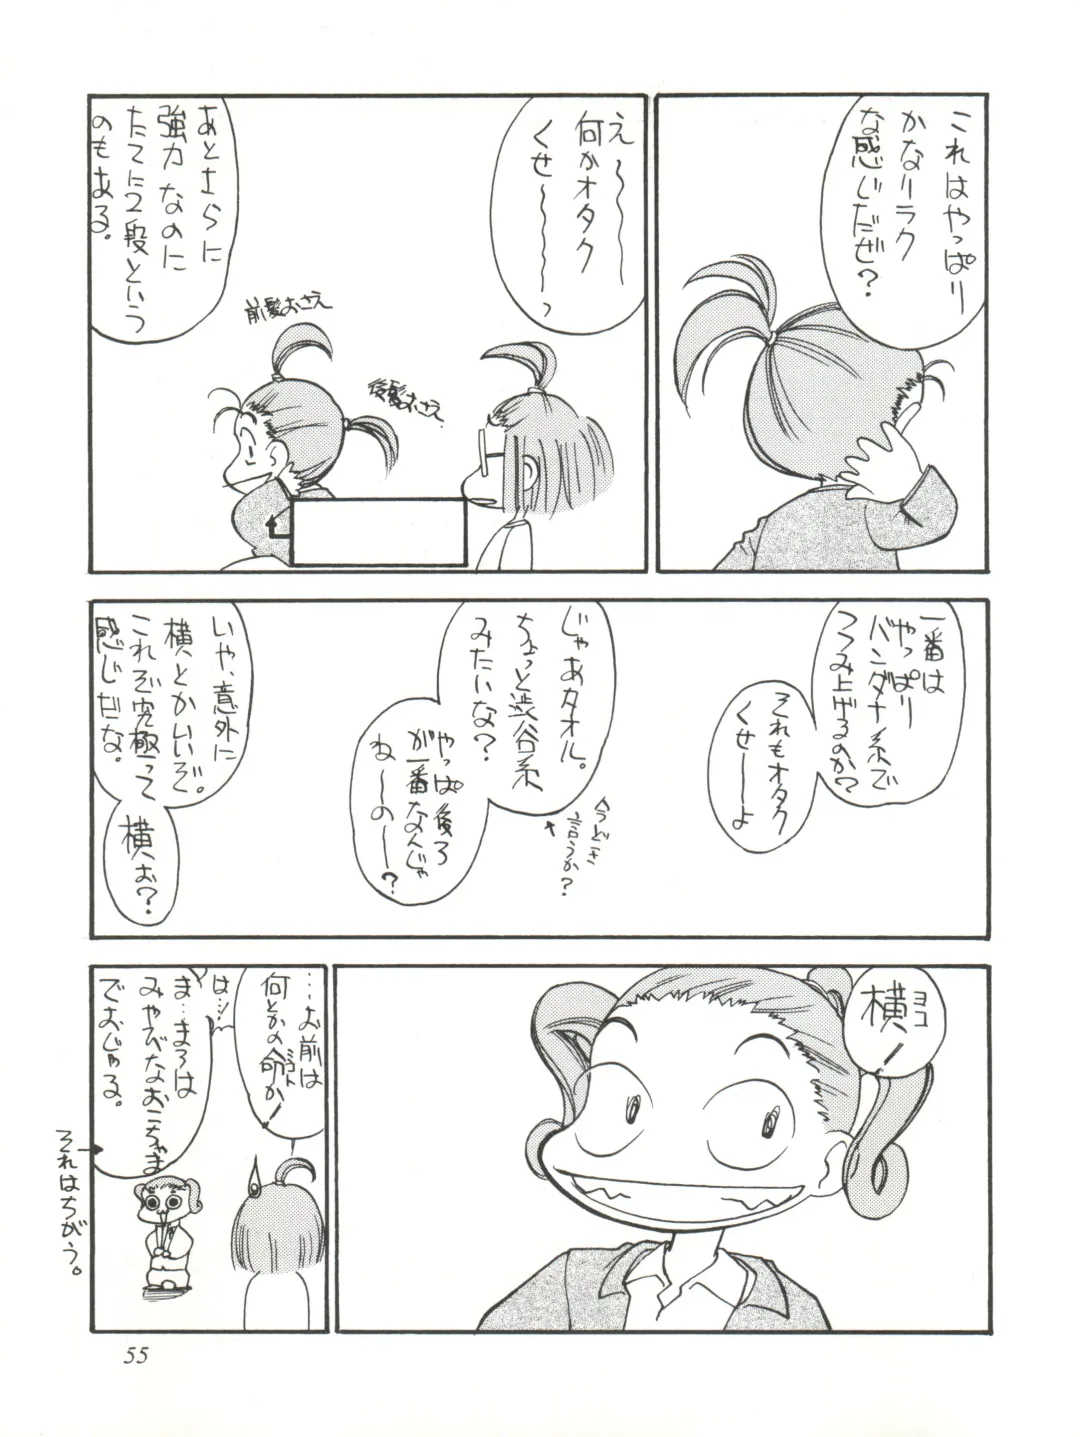 これはやっぱり
かなりラク
な感じだぜ？
え〜〜〜〜
何かオタク
くせ〜〜〜〜っ
あとさらに
強力なのに
たてに2段という
のもある。
前髪おさえ
後髪おさえ
一番は
やっぱり
バンダナ系で
つつみ上げるのか？
それもオタク
くせ――よ
じゃあタオル。
ちょっと渋谷系
みたいな？
今どき
言うか？
やっぱ後ろ
が一番なんじゃ
ね―の―？
いや、意外に
横とかいいぞ。
これぞ究極って
感じだな。
横ぉ？
横
ヨコ
…お前は
何とかの命か
ミコト
は…っ
ま…まろは
みやびなおこちゃま
でおじゃる。
それはちがう。
55